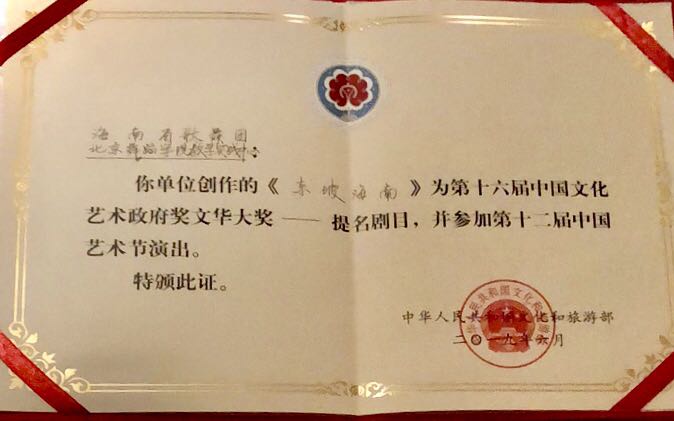 海南省歌舞团
北京舞蹈学院教学实践中心
你单位创作的《东坡海南》为第十六届中国文化
艺术政府奖文华大奖——提名剧目，并参加第十二届中国
艺术节演出。
特颁此证。
中华人民共和国文化和旅游部
二〇一九年六月